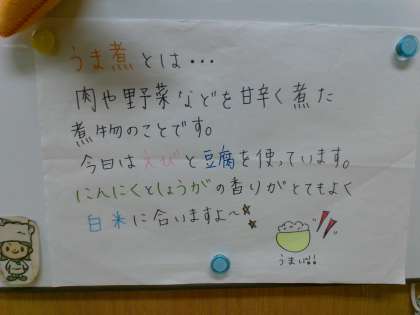 うま煮とは・・・
肉や野菜などを甘辛く煮た
煮物のことです。
今日はえびと豆腐を使っています。
にんにくとしょうがの香りがとてもよく
白米に合いますよ～
うまいな!!